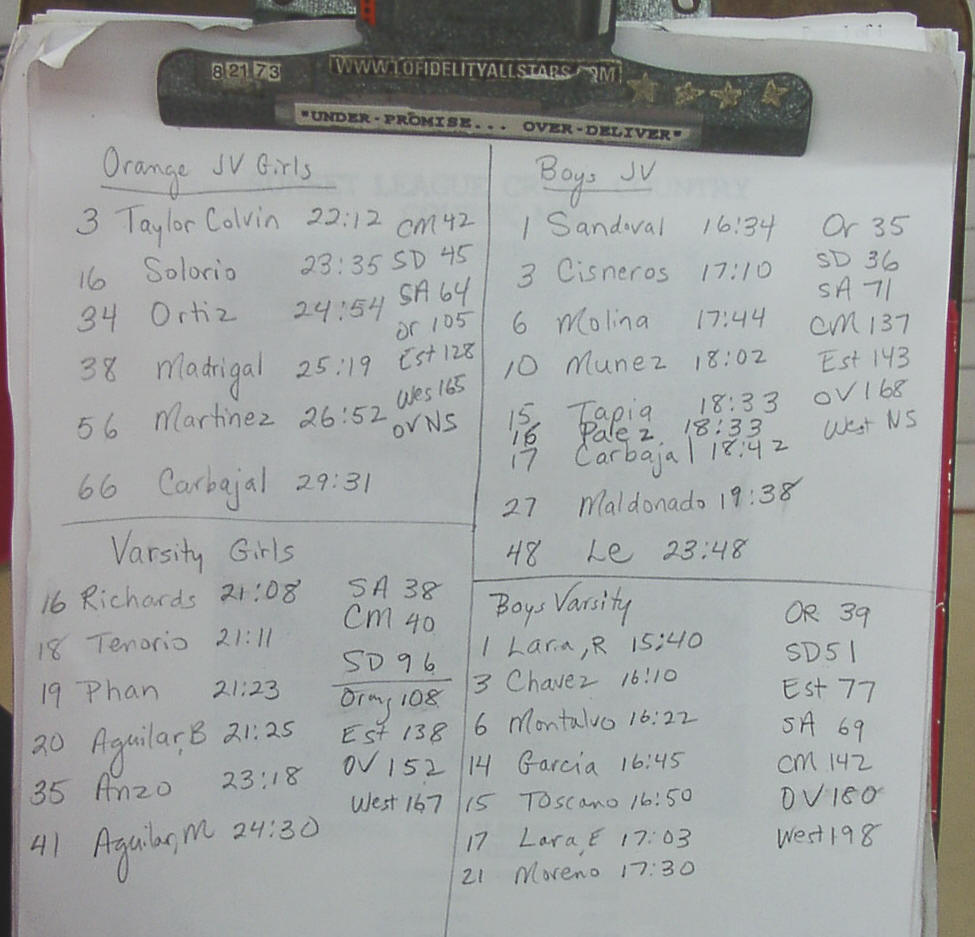 8 21 73
WWW.LOFIDELITYALLSTARS.COM
"UNDER-PROMISE... OVER-DELIVER"
Orange JV Girls
3 Taylor Colvin 22:12 CM 42
16 Solorio 23:35 SD 45
SA 64
34 Ortiz 24:54
Or 105
38 Madrigal 25:19 Est 128
Wes 165
56 Martinez 26:52 OV NS
66 Carbajal 29:31
Boys JV
1 Sandoval 16:34 Or 35
SD 36
3 Cisneros 17:10
SA 71
6 Molina 17:44 CM 137
10 Munez 18:02 Est 143
15 Tapia 18:33 OV 168
16 Paez 18:33 West NS
17 Carbajal 18:42
27 Maldonado 19:38
48 Le 23:48
Varsity Girls
16 Richards 21:08 SA 38
CM 40
18 Tenorio 21:11
SD 96
19 Phan 21:23 Orng 108
20 Aguilar, B 21:25 Est 138
OV 152
35 Anzo 23:18
West 167
41 Aguilar, M 24:30
Boys Varsity OR 39
1 Lara, R 15:40 SD 51
3 Chavez 16:10 Est 77
6 Montalvo 16:22 SA 69
14 Garcia 16:45 CM 142
15 Toscano 16:50 OV 180
17 Lara, E 17:03 West 198
21 Moreno 17:30